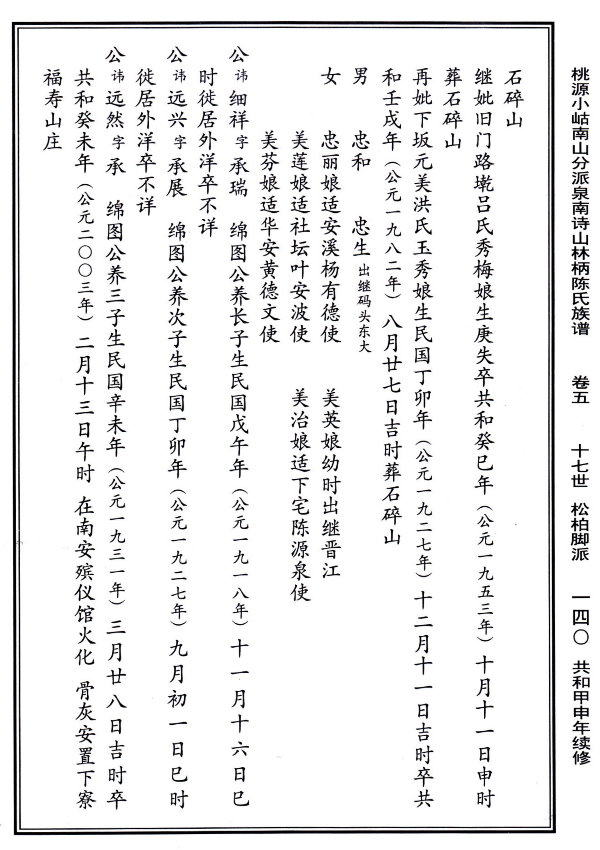 桃源小岵南山分派泉南诗山林柄陈氏族谱 卷五 十七世 松柏脚派 一四〇 共和甲申年续修
石碎山
继妣旧门路墘吕氏秀梅娘生庚失卒共和癸巳年（公元一九五三年）十月十一日申时
葬石碎山
再妣下坂元美洪氏玉秀娘生民国丁卯年（公元一九二七年）十二月十一日吉时卒共
和壬戌年（公元一九八二年）八月廿七日吉时葬石碎山
男 忠和 忠生出继码头东大
女 忠丽娘适安溪杨有德使 美英娘幼时出继晋江
美莲娘适社坛叶安波使 美治娘适下宅陈源泉使
美芬娘适华安黄德文使
公讳细祥字承瑞 绵图公养长子生民国戊午年（公元一九一八年）十一月十六日巳
时徙居外洋卒不详
公讳远兴字承展 绵图公养次子生民国丁卯年（公元一九二七年）九月初一日巳时
徙居外洋卒不详
公讳远然字承 绵图公养三子生民国辛未年（公元一九三一年）三月廿八日吉时卒
共和癸未年（公元二〇〇三年）二月十三日午时 在南安殡仪馆火化 骨灰安置下寮
福寿山庄